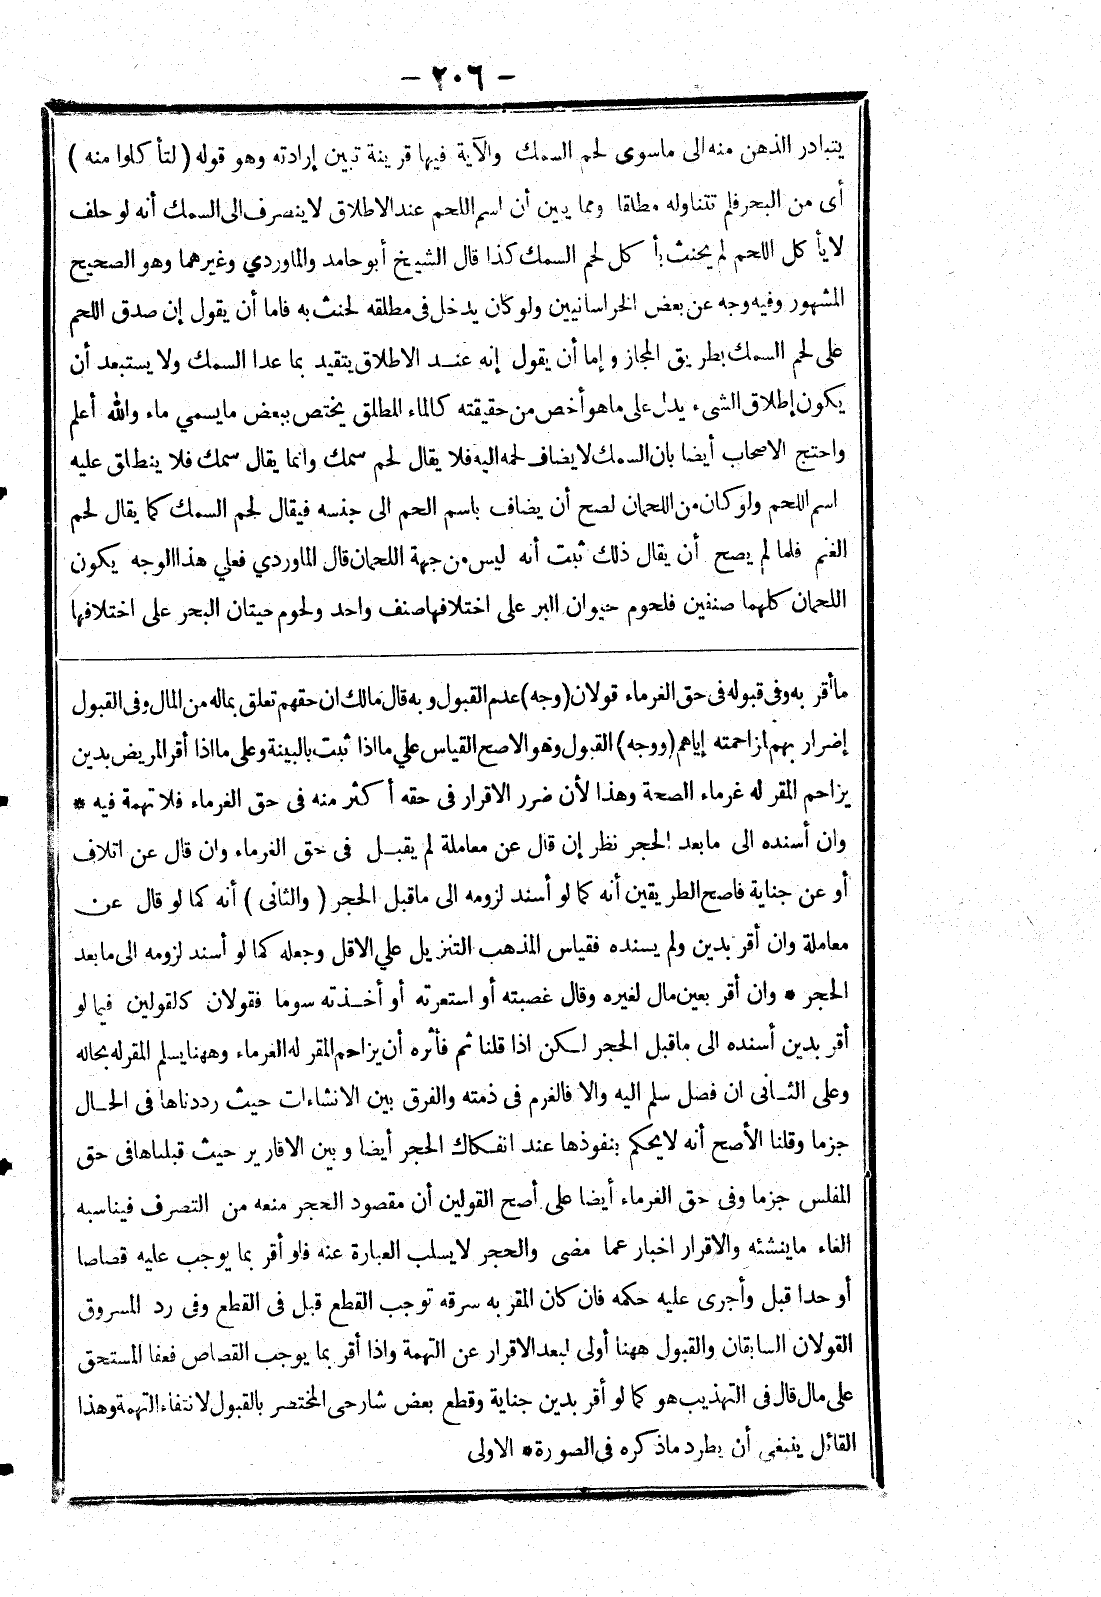 - ٢٠٦ -
يتبادر الذهن منه الى ماسوى لحم السمك والآية فيها قرينة تبين إرادته وهو قوله ( لتأ كلوا منه )
أى من البحر فلم تتناوله مطلقا ومما يبين أن اسم اللحم عند الاطلاق لاينصرف الى السمك أنه لو حلف
لايأ كل اللحم لم يحنث بأ كل لحم السمك كذا قال الشيخ أبو حامد والماوردي وغيرهما وهو الصحيح
المشهور وفيه وجه عن بعض الخراسانيين ولو كان يدخل فى مطلقه لحنث به فاما أن يقول إن صدق اللحم
على لحم السمك بطريق المجاز و إما أن يقول إنه عند الاطلاق يتقيد بما عدا السمك ولا يستبعد أن
يكون إطلاق الشىء يدل على ماهو أخص من حقيقته كالماء المطلق يختص ببعض مايسمي ماء والله أعلم
واحتج الاصحاب أيضا بان السمك لايضاف لحمه اليه فلا يقال لحم سمك وانما يقال سمك فلا ينطلق عليه
اسم اللحم ولو كان من اللحمان لصح أن يضاف باسم الحم الى جنسه فيقال لحم السمك كما يقال لحم
الغنم فلما لم يصح أن يقال ذلك ثبت أنه ليس من جهة اللحمان قال الماوردي فعلي هذا الوجه يكون
اللحمان كلهما صنفين فلحوم حيوان البر على اختلافها صنف واحد ولحوم حيتان البحر على اختلافها
ماأقر به وفى قبوله فى حق الغرماء قولان (وجه) عدم القبول و به قال مالك ان حقهم تعلق بماله من المال وفى القبول
إضرار بهم لزاحمته إياهم (ووجه) القبول وهو الاصح القياس علي مااذا ثبت بالبينة وعلى مااذا أقر المريض بدين
يزاحم المقر له غرماء الصحة وهذا لأن ضرر الاقرار فى حقه أ كثر منه فى حق الغرماء فلا تهمة فيه *
وان أسنده الى مابعد الحجر نظر إن قال عن معاملة لم يقبل فى حق الغرماء وان قال عن اتلاف
أو عن جناية فاصح الطريقين أنه كما لو أسند لزومه الى ماقبل الحجر ( والثانى ) أنه كما لو قال عن
معاملة وان أقر بدين ولم يسنده فقياس المذهب التنزيل علي الاقل وجعله كما لو أسند لزومه الى مابعد
الحجر * وان أقر بعين مال لغيره وقال غصبته أو استعرته أو أخذته سوما فقولان كالقولين فيما لو
أقر بدين أسنده الى ماقبل الحجر لكن اذا قلنا ثم فأثره أن يزاحم المقر له الغرماء وههنا يسلم المقر له بحاله
وعلى الثانى ان فصل سلم اليه والا فالغرم فى ذمته والفرق بين الانشاءات حيث رددناها فى الحال
جزما وقلنا الأصح أنه لايحكم بنفوذها عند انفكاك الحجر أيضا و بين الاقارير حيث قبلناها فى حق
المفلس جزما وفى حق الغرماء أيضا على أصح القولين أن مقصود الحجر منعه من التصرف فيناسبه
الغاء ماينشئه والاقرار اخبار عما مضى والحجر لايسلب العبارة عنه فلو أقر بما يوجب عليه قصاصا
أو حدا قبل وأجرى عليه حكمه فان كان المقر به سرقه توجب القطع قبل فى القطع وفى رد المسروق
القولان السابقان والقبول ههنا أولى لبعد الاقرار عن التهمة واذا أقر بما يوجب القصاص فعفا المستحق
على مال قال فى التهذيب هو كما لو أقر بدين جناية وقطع بعض شارحى المختصر بالقبول لانتفاء التهمة وهذا
القائل ينبغى أن يطرد ماذكره فى الصورة * الاولى